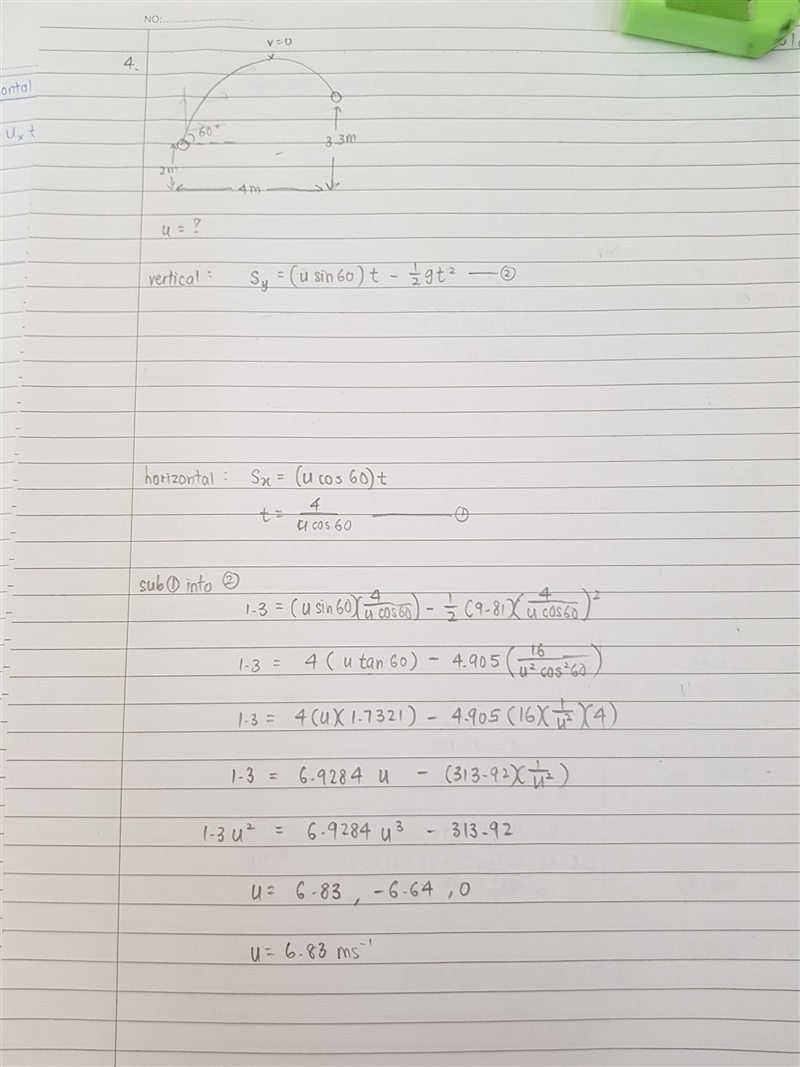 NO:
ontal
uₓ t
4.
v=0
60°
2m
3.3m
4m
u = ?
vertical: Sy = (u sin60) t − ½gt² — ②
horizontal: Sx = (u cos 60) t
t = 4/(u cos 60) — ①
sub ① into ②
1.3 = (u sin60)(4/(u cos60)) − ½ (9.81)(4/(u cos60))²
1.3 = 4 (u tan 60) − 4.905 (16/(u² cos² 60))
1.3 = 4(u)(1.7321) − 4.905 (16)(1/u²)(4)
1.3 = 6.9284 u − (313.92)(1/u²)
1.3u² = 6.9284 u³ − 313.92
u = 6.83 , −6.64 , 0
u = 6.83 ms⁻¹